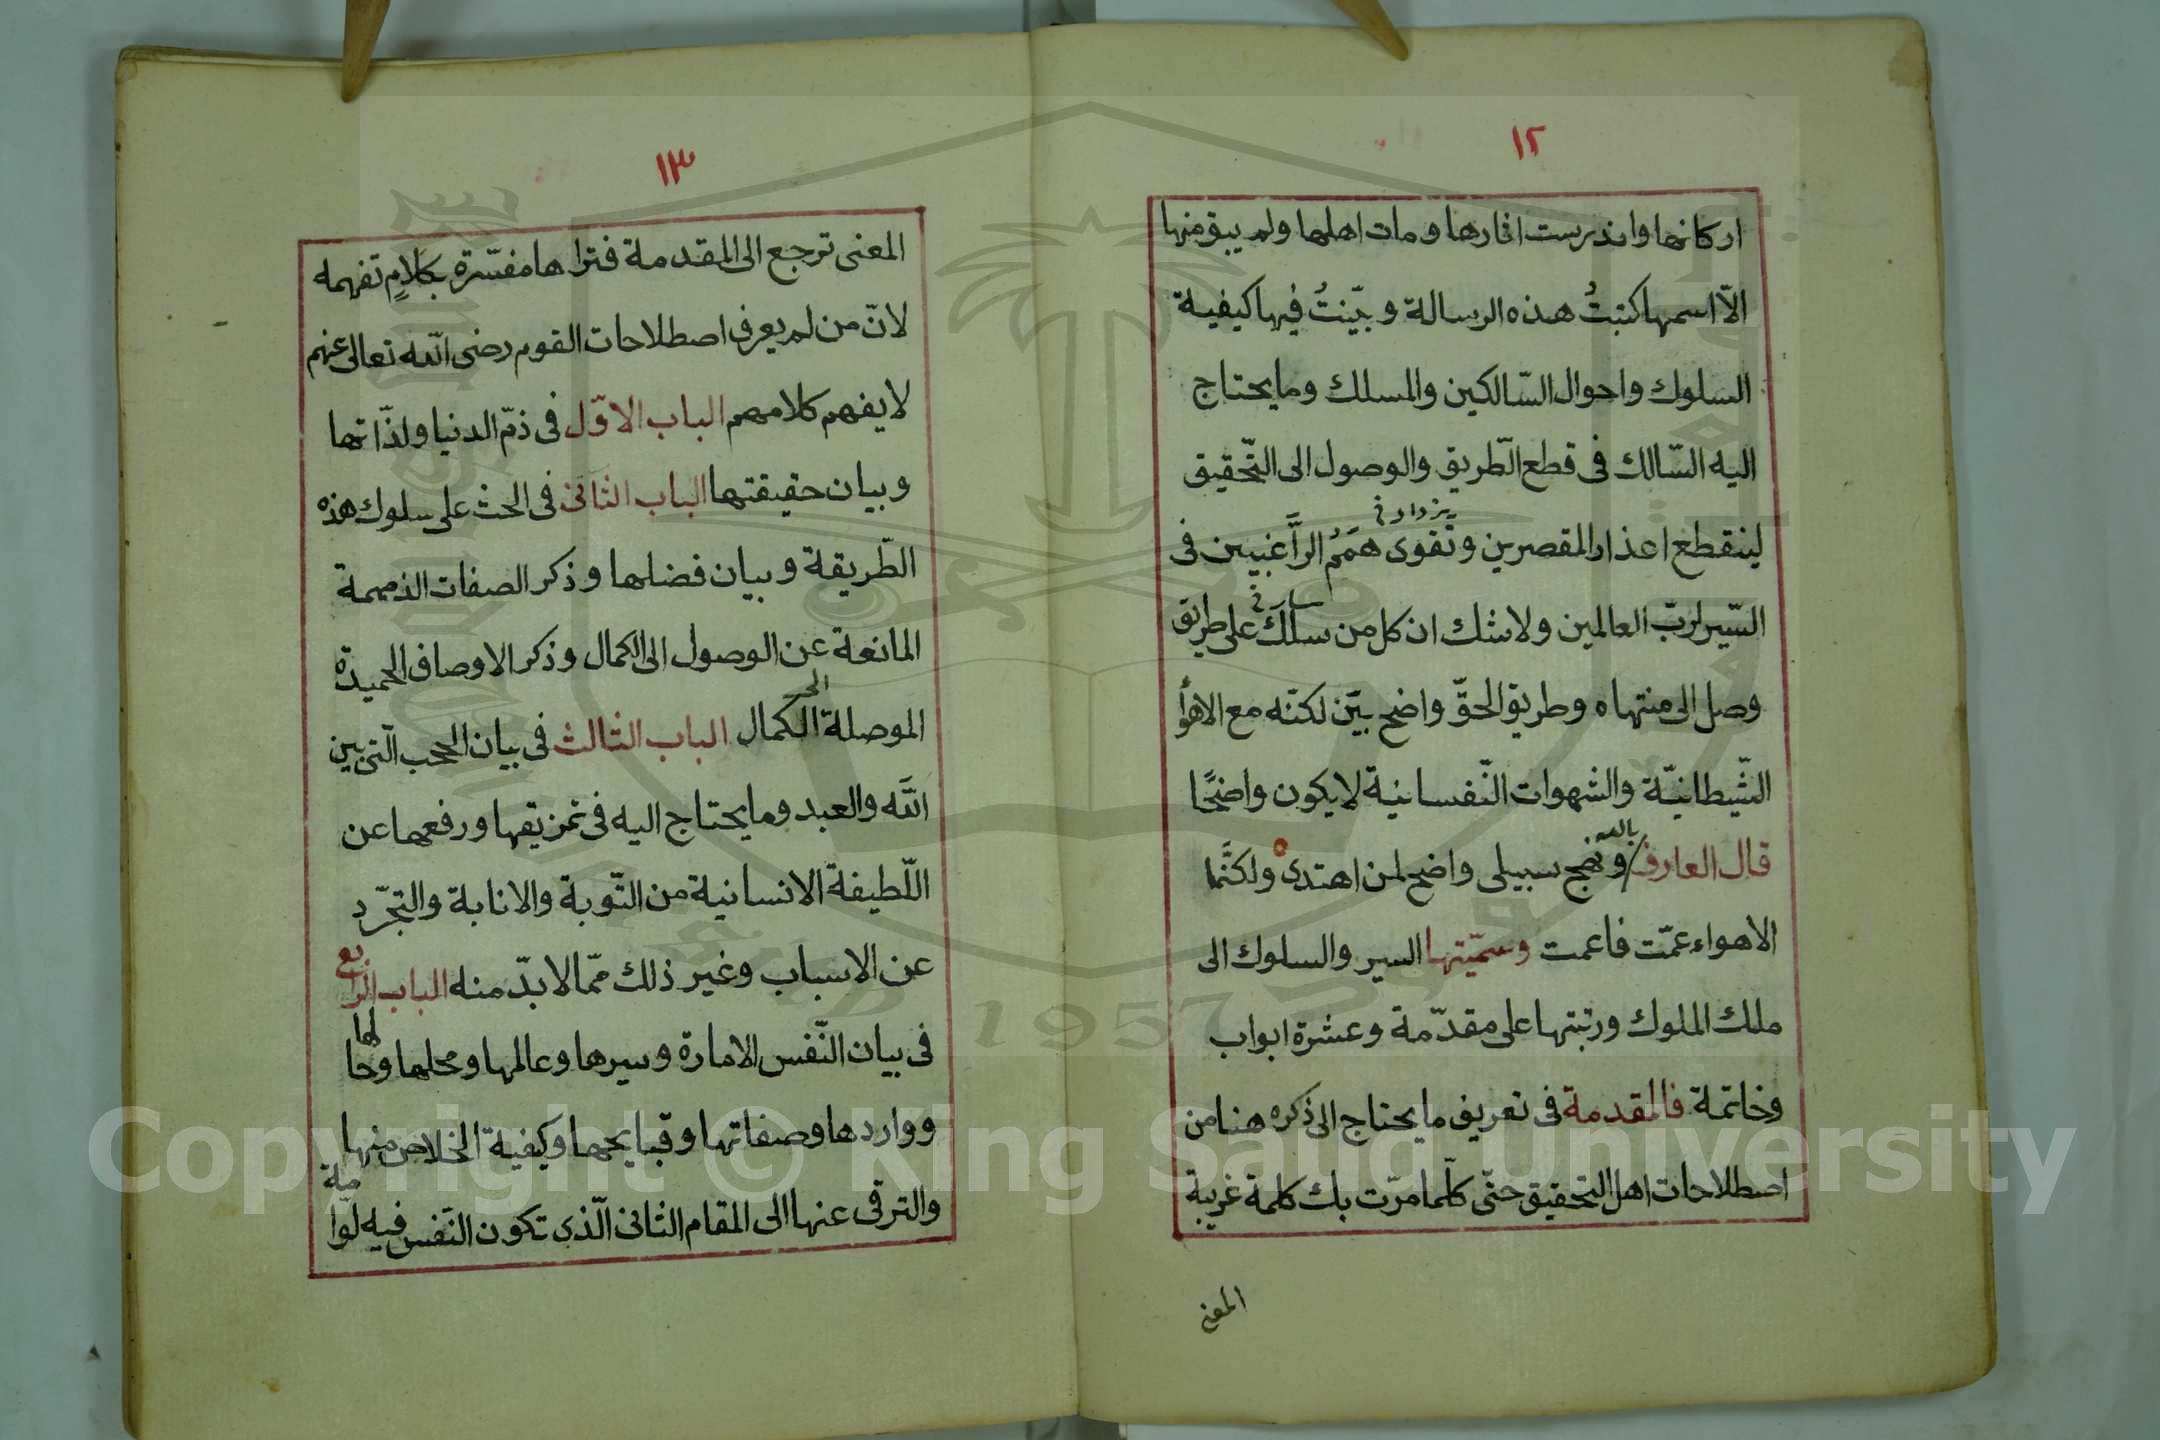 ١٢
اركانها واندرست اثارها ومات اهلها ولم يبق منها
الّا اسمها كتبتُ هذه الرسالة وبيّنتُ فيها كيفية
السلوك واحوال السّالكين والمسلك وما يحتاج
اليه السّالك فى قطع الطّريق والوصول الى التّحقيق
يزداد خ
لينقطع اعذار المقصرين وتقوى هِمَمُ الرَّاغبين فى
السّير لربّ العالمين ولا شك ان كل من سلك على طريق
وصل الى منتهاه وطريق الحقّ واضح بيّن لكنّه مع الاهوأ
الشّيطانيّة والشهوات النّفسانية لا يكون واضحًا
بالله
قال العارف ونهج سبيلى واضح لمن اهتدى ولكنَّما
الاهواء عمّت فاعمت وسمّيتها السير والسلوك الى
ملك الملوك ورتبتها على مقدّمة وعشرة ابواب
وخاتمة فالمقدمة فى تعريف ما يحتاج الى ذكره هنا من
اصطلاحات اهل التحقيق حتّى كلّما مرّت بك كلمة غريبة
المعنى
١٣
المعنى ترجع الى المقدمة فتراها مفسّرة بكلامٍ تفهمه
لانّ من لم يعرف اصطلاحات القوم رضى الله تعالى عنهم
لا يفهم كلامهم الباب الاوّل فى ذمّ الدنيا ولذّاتها
وبيان حقيقتها الباب الثانى فى الحث على سلوك هذه
الطّريقة وبيان فضلها وذكر الصفات الذميمة
المانعة عن الوصول الى الكمال وذكر الاوصاف الحميدة
الى
الموصلة الكمال الباب الثالث فى بيان الحجب الّتى بين
الله والعبد وما يحتاج اليه فى تمزيقها ورفعها عن
اللّطيفة الانسانية من التّوبة والانابة والتجرّد
عن الاسباب وغير ذلك ممّا لا بدّ منه الباب الرابع
فى بيان النّفس الامارة وسيرها وعالمها ومحلها وحالها
وواردها وصفاتها وقبايحها وكيفية الخلاص منها
والترقى عنها الى المقام الثانى الّذى تكون النّفس فيه لوّامة
1957
Copyright © King Saud University